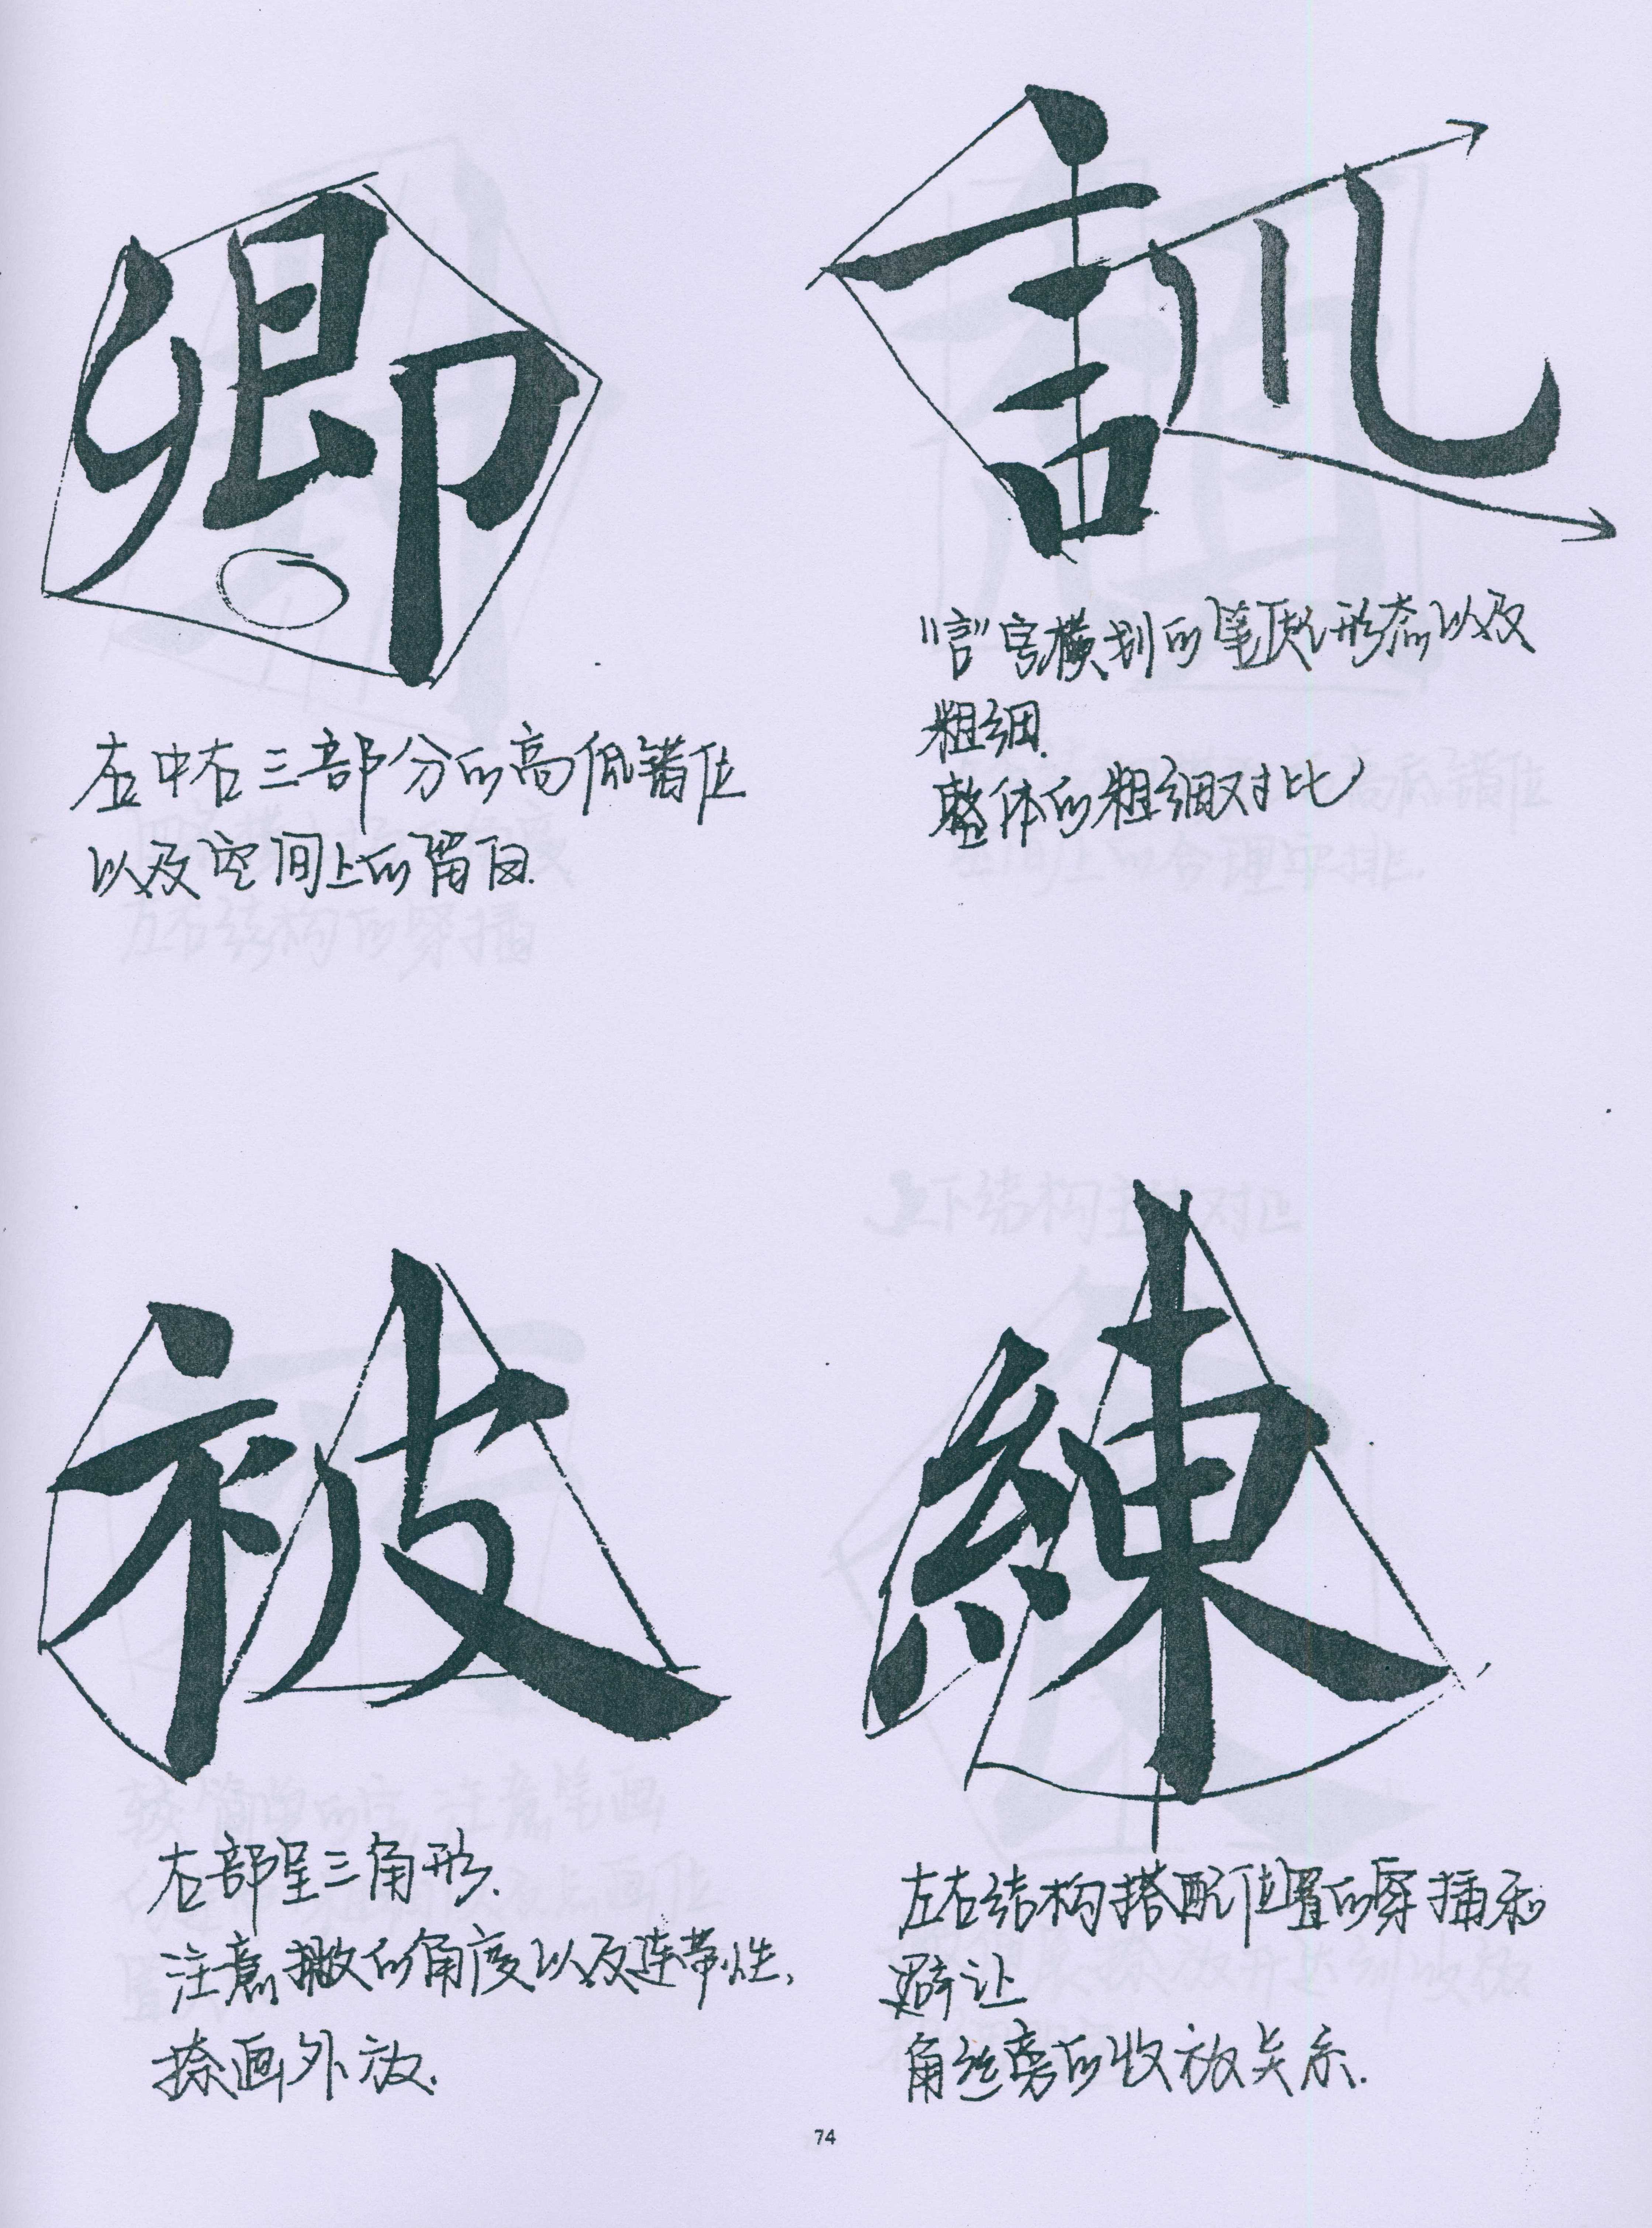 卿
左中右三部分的高低错位
以及空间上的留白.
訓
"言"旁横划的笔顺形态以及
粗细.
整体的粗细对比
被
右部呈三角形.
注意撇的角度以及连带性,
捺画外放.
練
左右结构搭配位置的穿插和
避让
角丝旁的收放关系.
74